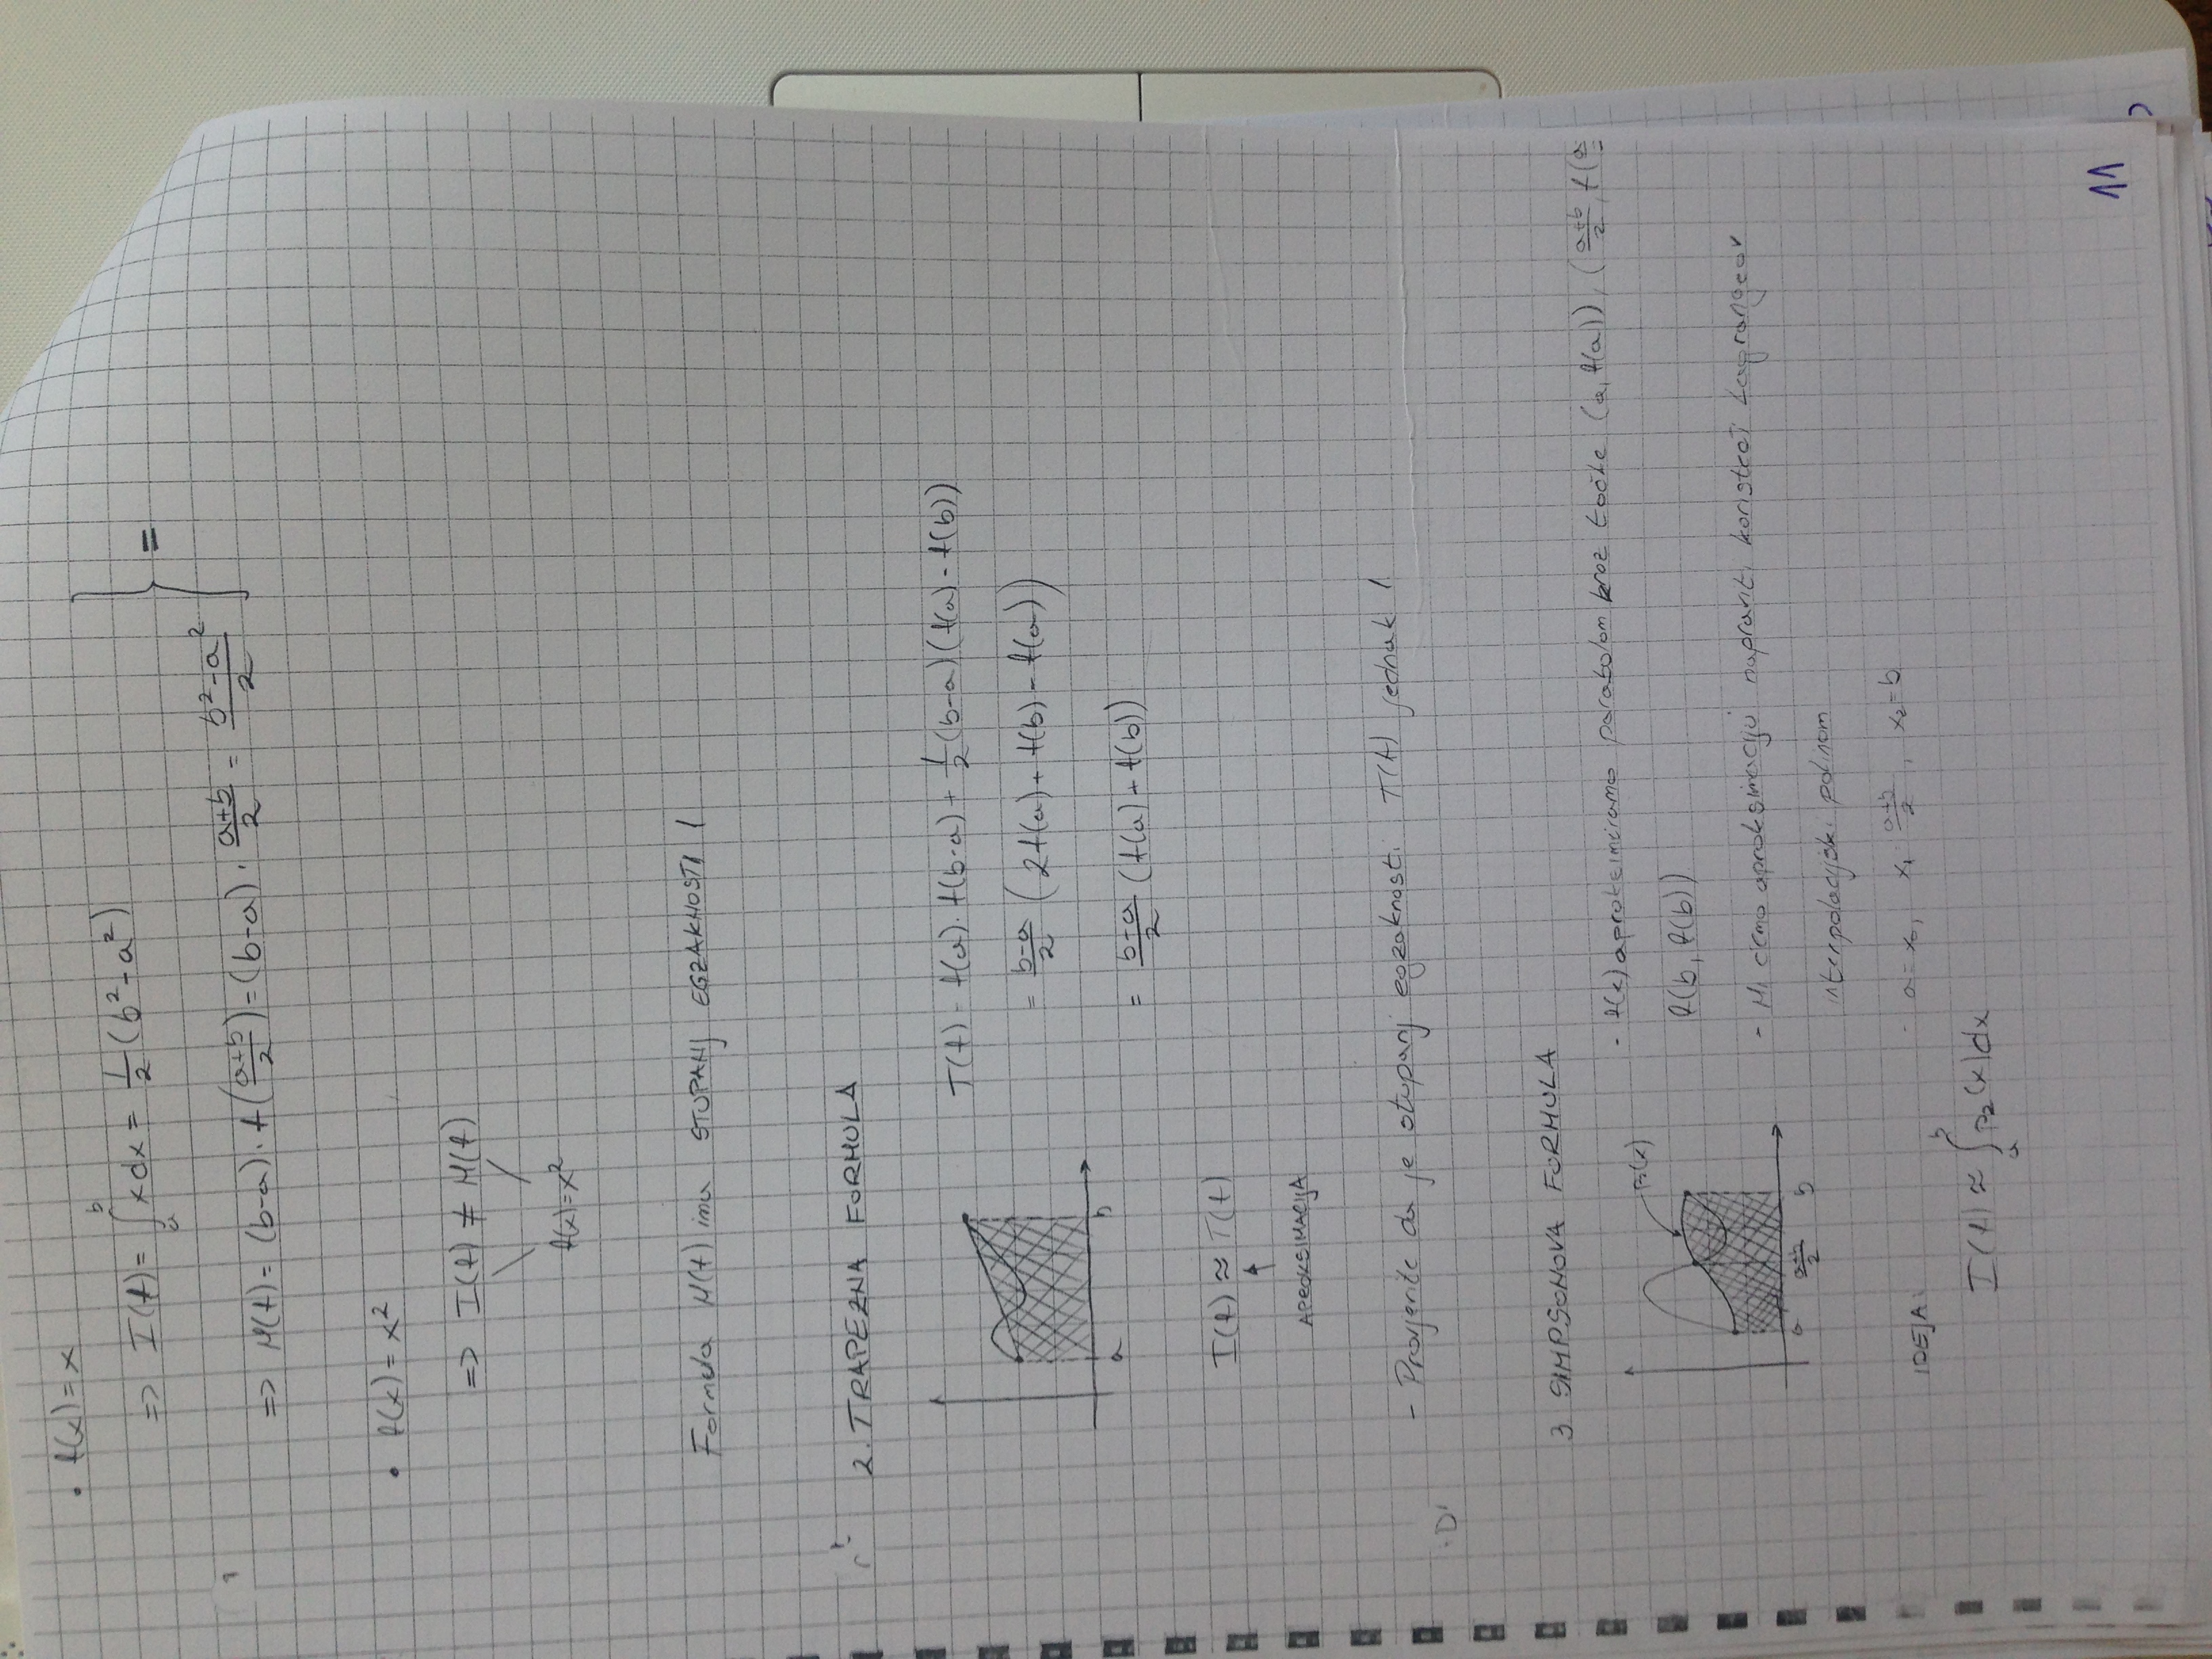 • f(x) = x
b
=> I(f) = ∫ x dx = 1/2 (b² - a²) } =
a
=> M(f) = (b-a) · f((a+b)/2) = (b-a) · (a+b)/2 = (b²-a²)/2
• f(x) = x²
=> I(f) ≠ M(f)
f(x) = x²
Formula M(f) ima STUPANJ EGZAKNOSTI 1
2. TRAPEZNA FORMULA
T(f) = f(a) · f(b-a) + 1/2 (b-a)(f(a) - f(b))
= (b-a)/2 (2f(a) + f(b) - f(a))
a b
= (b-a)/2 (f(a) + f(b))
I(f) ≈ T(f)
APROKSIMACIJA
- Provjerite da je stupanj egzaknosti T(f) jednak 1
3 SIMPSONOVA FORMULA
- f(x) aproksimiramo parabolom kroz točke (a, f(a)), ((a+b)/2, f((a
p₂(x)
f(b, f(b))
- Mi ćemo aproksimaciju napraviti koristeći Lagrangeov
a (a+b)/2 b
interpolacijski polinom
- a = x₀, x₁ = (a+b)/2, x₂ = b
IDEJA:
b
I(f) ≈ ∫ p₂(x) dx
a
11